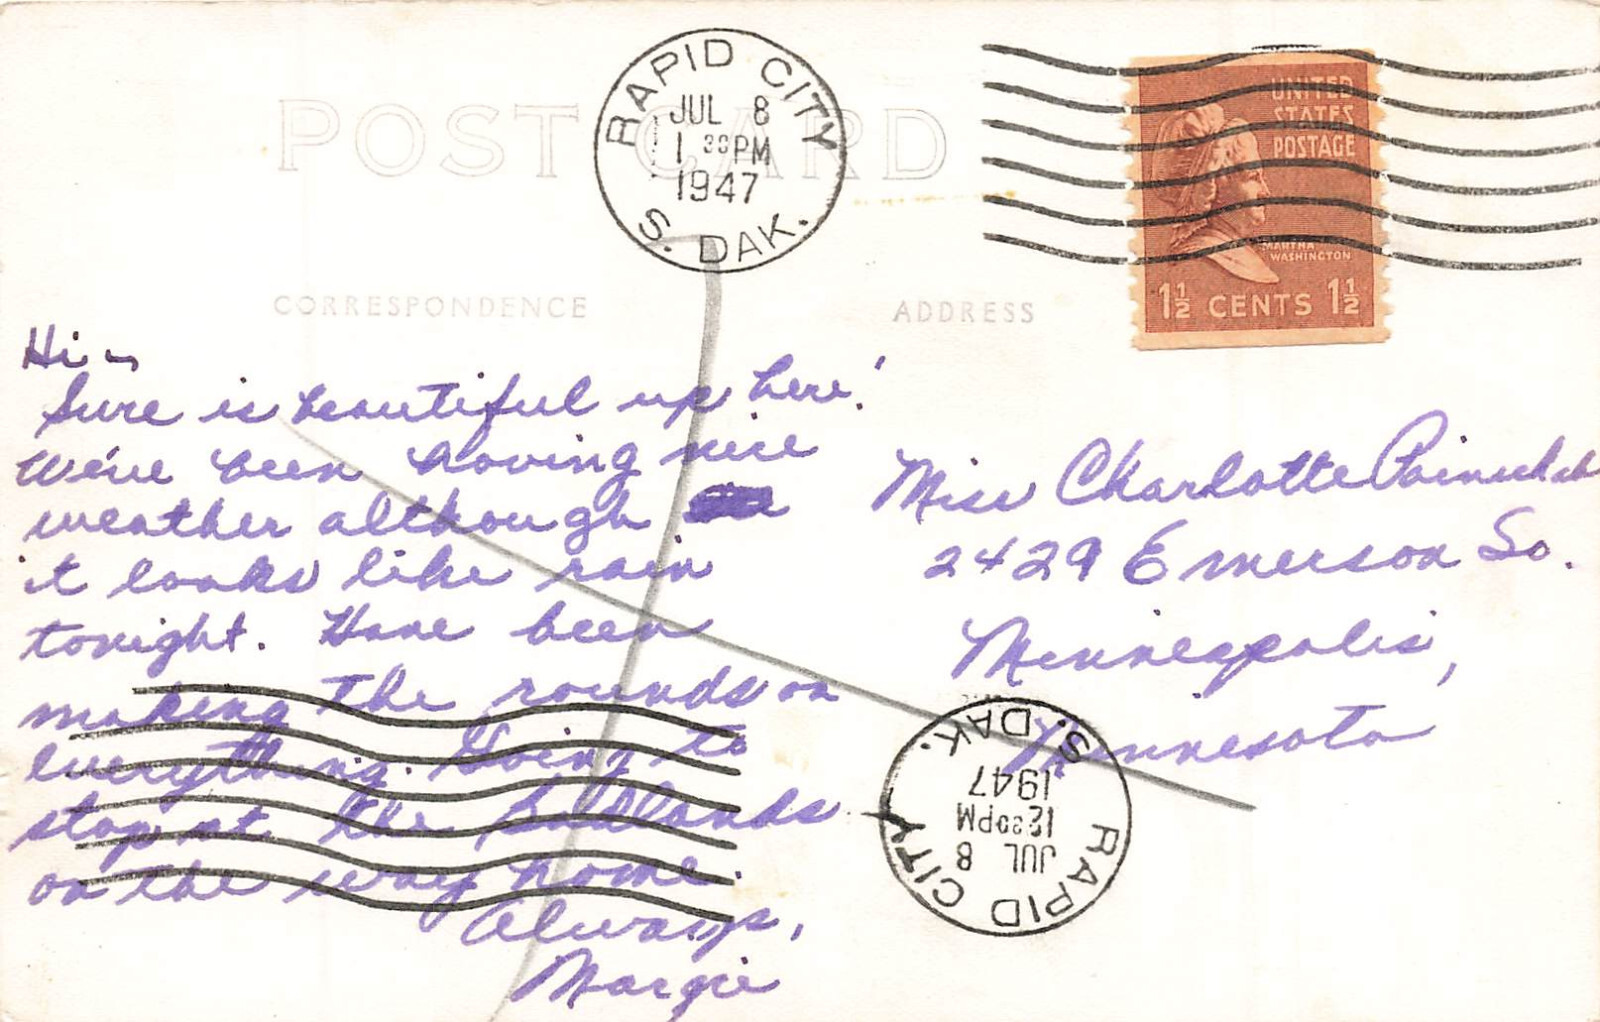 POST CARD
RAPID CITY
JUL 8
1 30PM
1947
S. DAK.
UNITED
STATES
POSTAGE
MARTHA
WASHINGTON
1½ CENTS 1½
CORRESPONDENCE
ADDRESS
Hi –
Sure is beautiful up here!
We've been having nice
weather although
it looks like rain
tonight. Have been
making the rounds on
everything. Going to
stop at the Badlands
on the way home.
Always,
Margie
Miss Charlotte
2429 Emerson So.
Minneapolis,
Minnesota
RAPID CITY
JUL 8
12 30PM
1947
S. DAK.